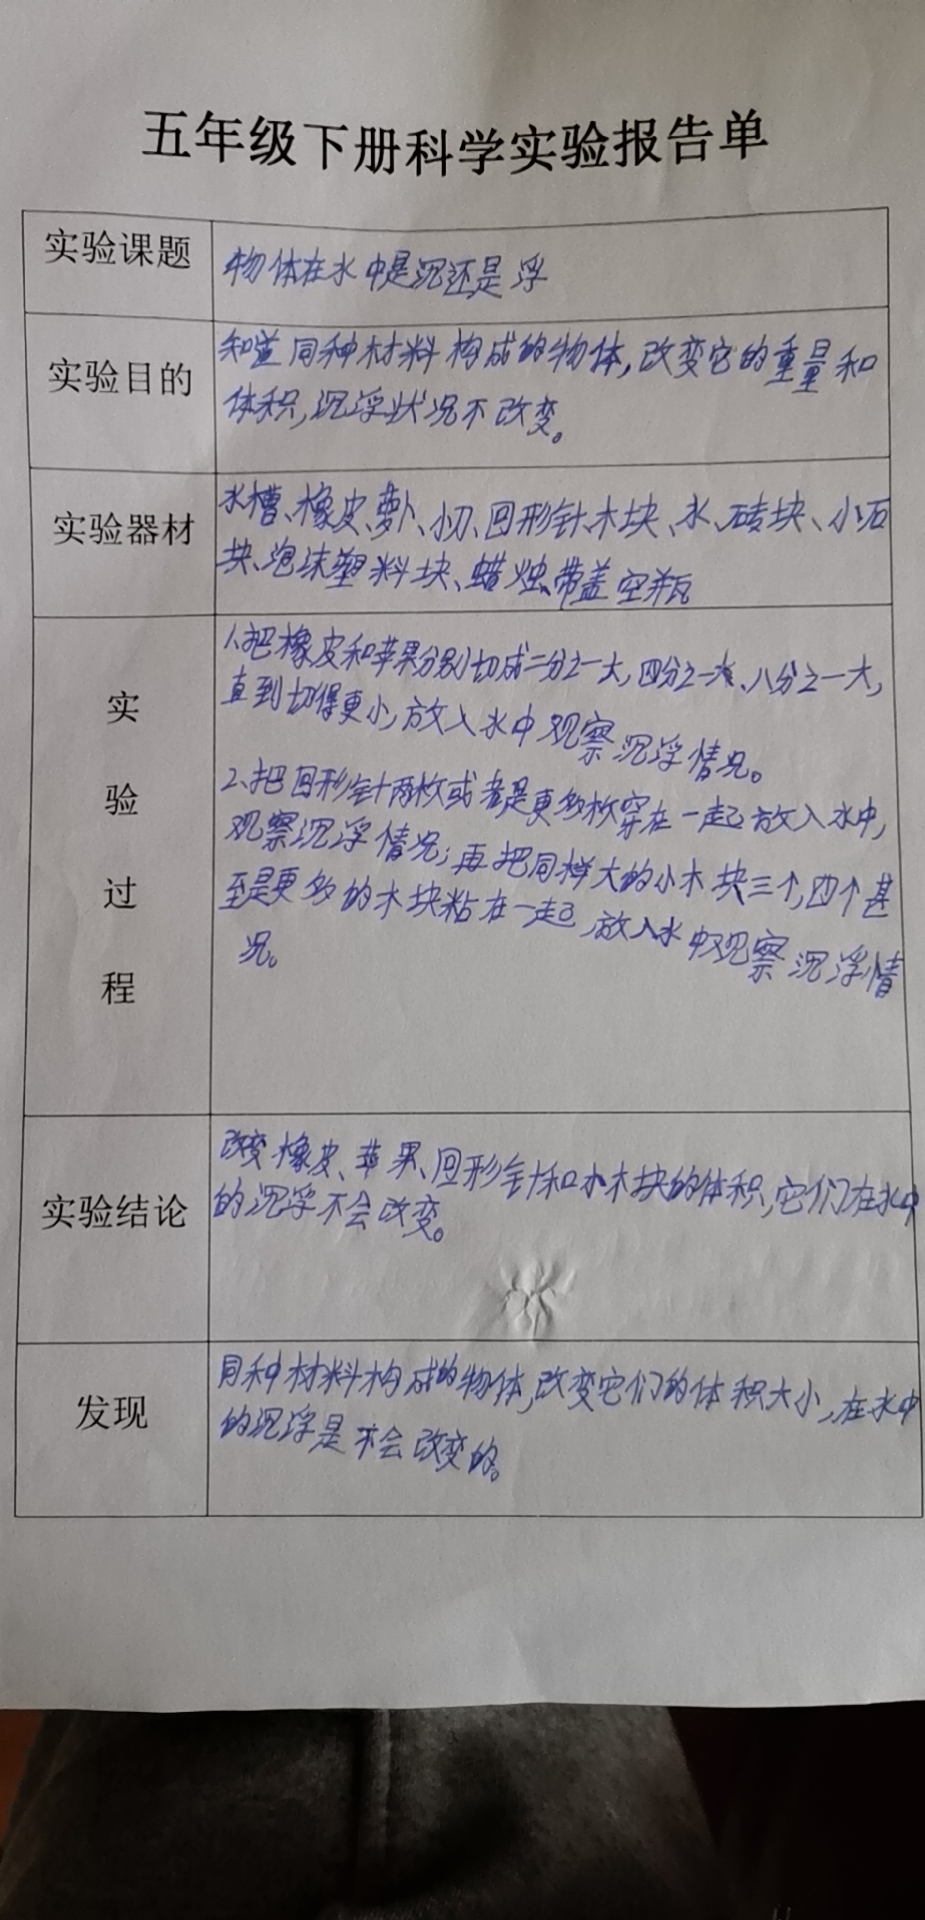 五年级下册科学实验报告单
实验课题
物体在水中是沉还是浮
实验目的
知道同种材料构成的物体,改变它的重量和
体积,沉浮状况不改变。
实验器材
水槽、橡皮、萝卜、小刀、回形针、木块、水、砖块、小石
块、泡沫塑料块、蜡烛、带盖空瓶
实验过程
1、把橡皮和苹果分别切成二分之一大,四分之一大、八分之一大,
直到切得更小,放入水中观察沉浮情况。
2、把回形针两枚或者是更多枚穿在一起放入水中,
观察沉浮情况;再把同样大的小木块三个,四个甚
至是更多的木块粘在一起,放入水中观察沉浮情
况。
实验结论
改变橡皮、苹果、回形针和小木块的体积,它们在水中
的沉浮不会改变。
发现
同种材料构成的物体,改变它们的体积大小,在水中
的沉浮是不会改变的。